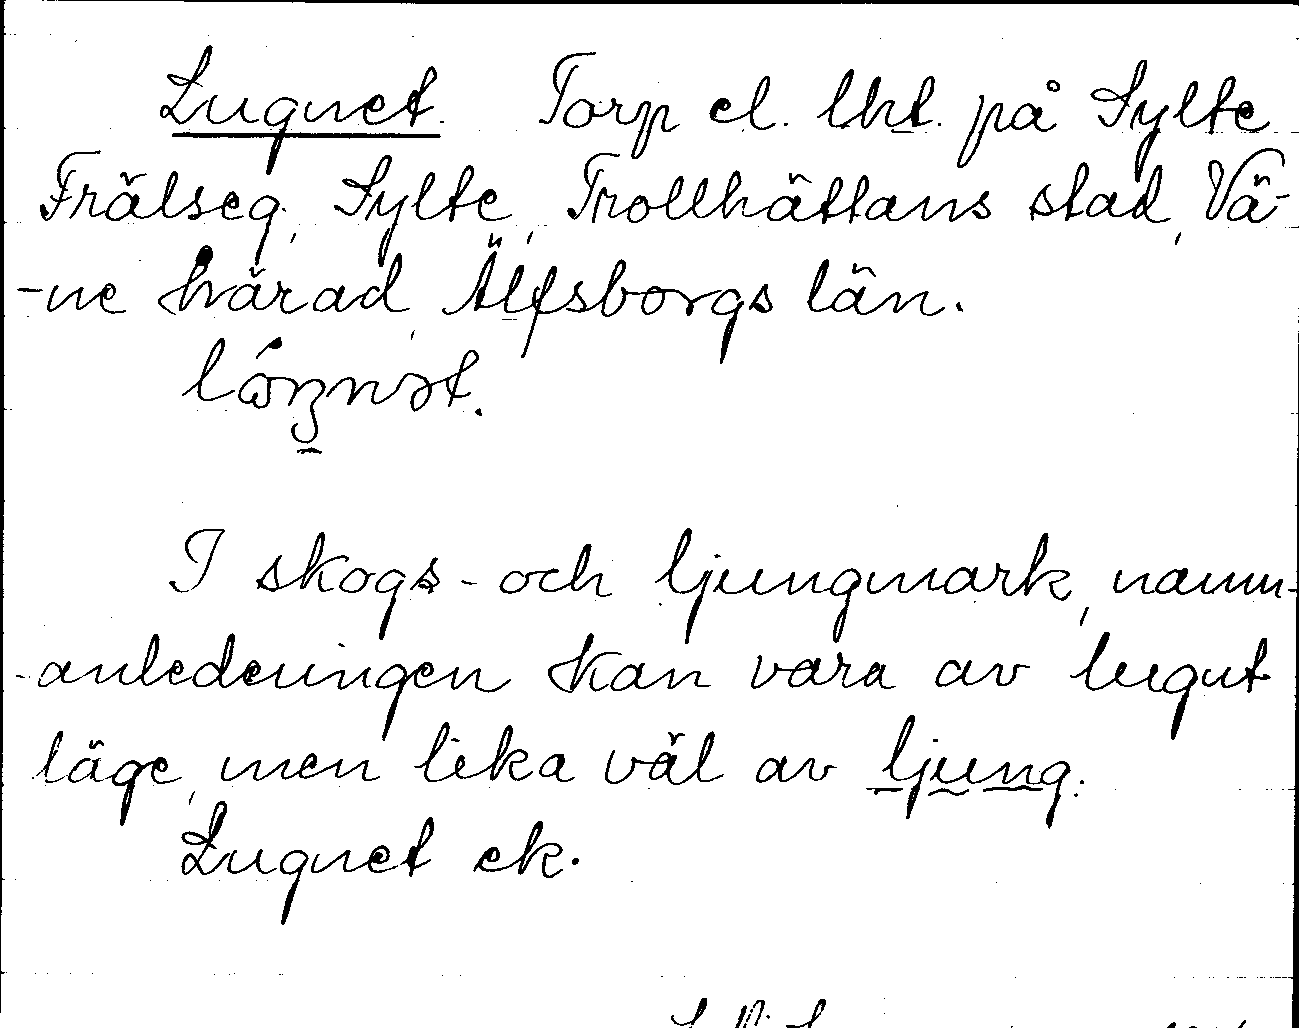 Lugnet. Torp el. lht. på Sylte
Frälseg., Sylte, Trollhättans stad, Vä-
-ne härad, Älfsborgs län.
I skogs- och ljungmark, namn-
-anledningen kan vara av lugnt
läge, men lika väl av ljung.
Lugnet ek.